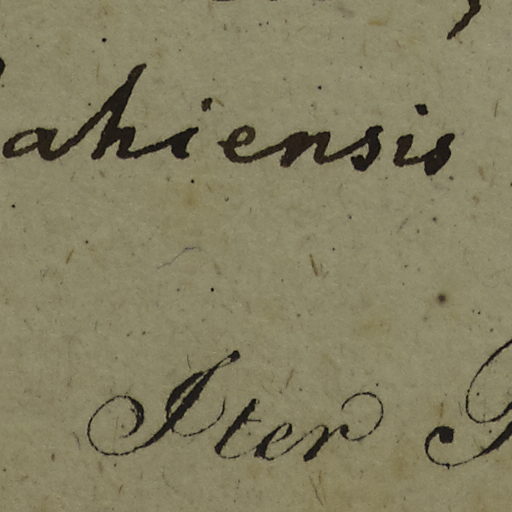 ahiensis
Iter